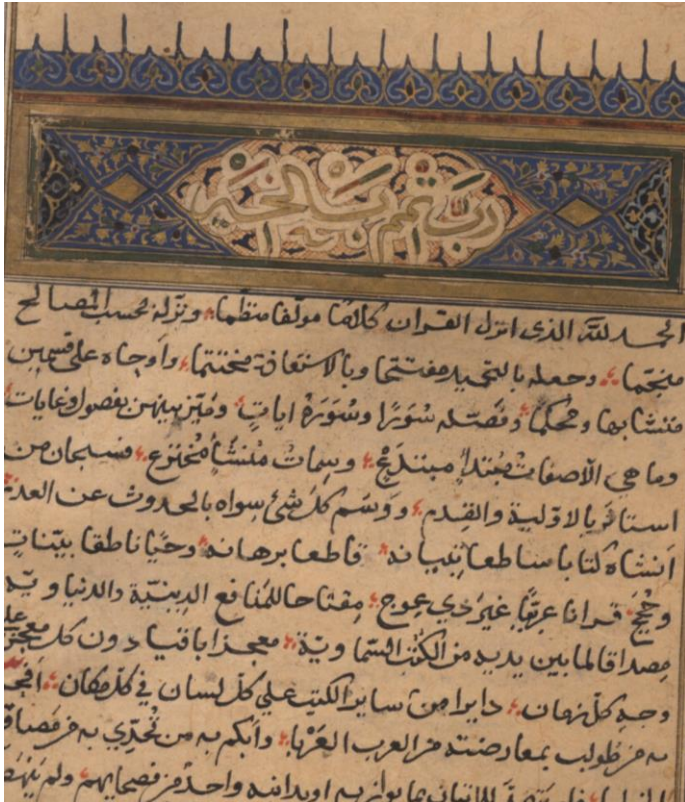 رب تمم بالخير
الحمد لله الذى انزل القران كلاما مولفا منظما ونزله بحسب المصالح
منجما وجعله بالتحميد مفتتحا وبالاستعاذة مختتما وأوحاه على قسمين
متشابها ومحكما وفصّله سُوَرًا وسُوَرَهُ اياتٍ وميّز بينهن بفصول وغايات
وما هي الّا صفات مُبتدإٍ مبتدَعٍ وسِماتُ مُنشَإٍ مُخترَع فسبحان من
استاثر بالاوّلية والقِدم ووسَم كلّ شئ سِواه بالحدوث عن العدم
أنشاه كتابا ساطعا تبيانه قاطعا برهانه وحيًا ناطقا ببيّناتٍ
وحُججٍ قرانا عربيًّا غيرَ ذي عِوج مِفتاحا للمنافع الدينيّة والدنياويّه
مِصداقا لما بين يديه من الكُتُب السّماويّة معجزا باقيا دون كل معجز على
وجه كلّ زمان دايرا من ساير الكتب علي كل لسان في كلّ مكان أفحم
به من طولب بمعارضته من العرب العَرْبا وأبكم به من تُحُدِّي به من مصاقع